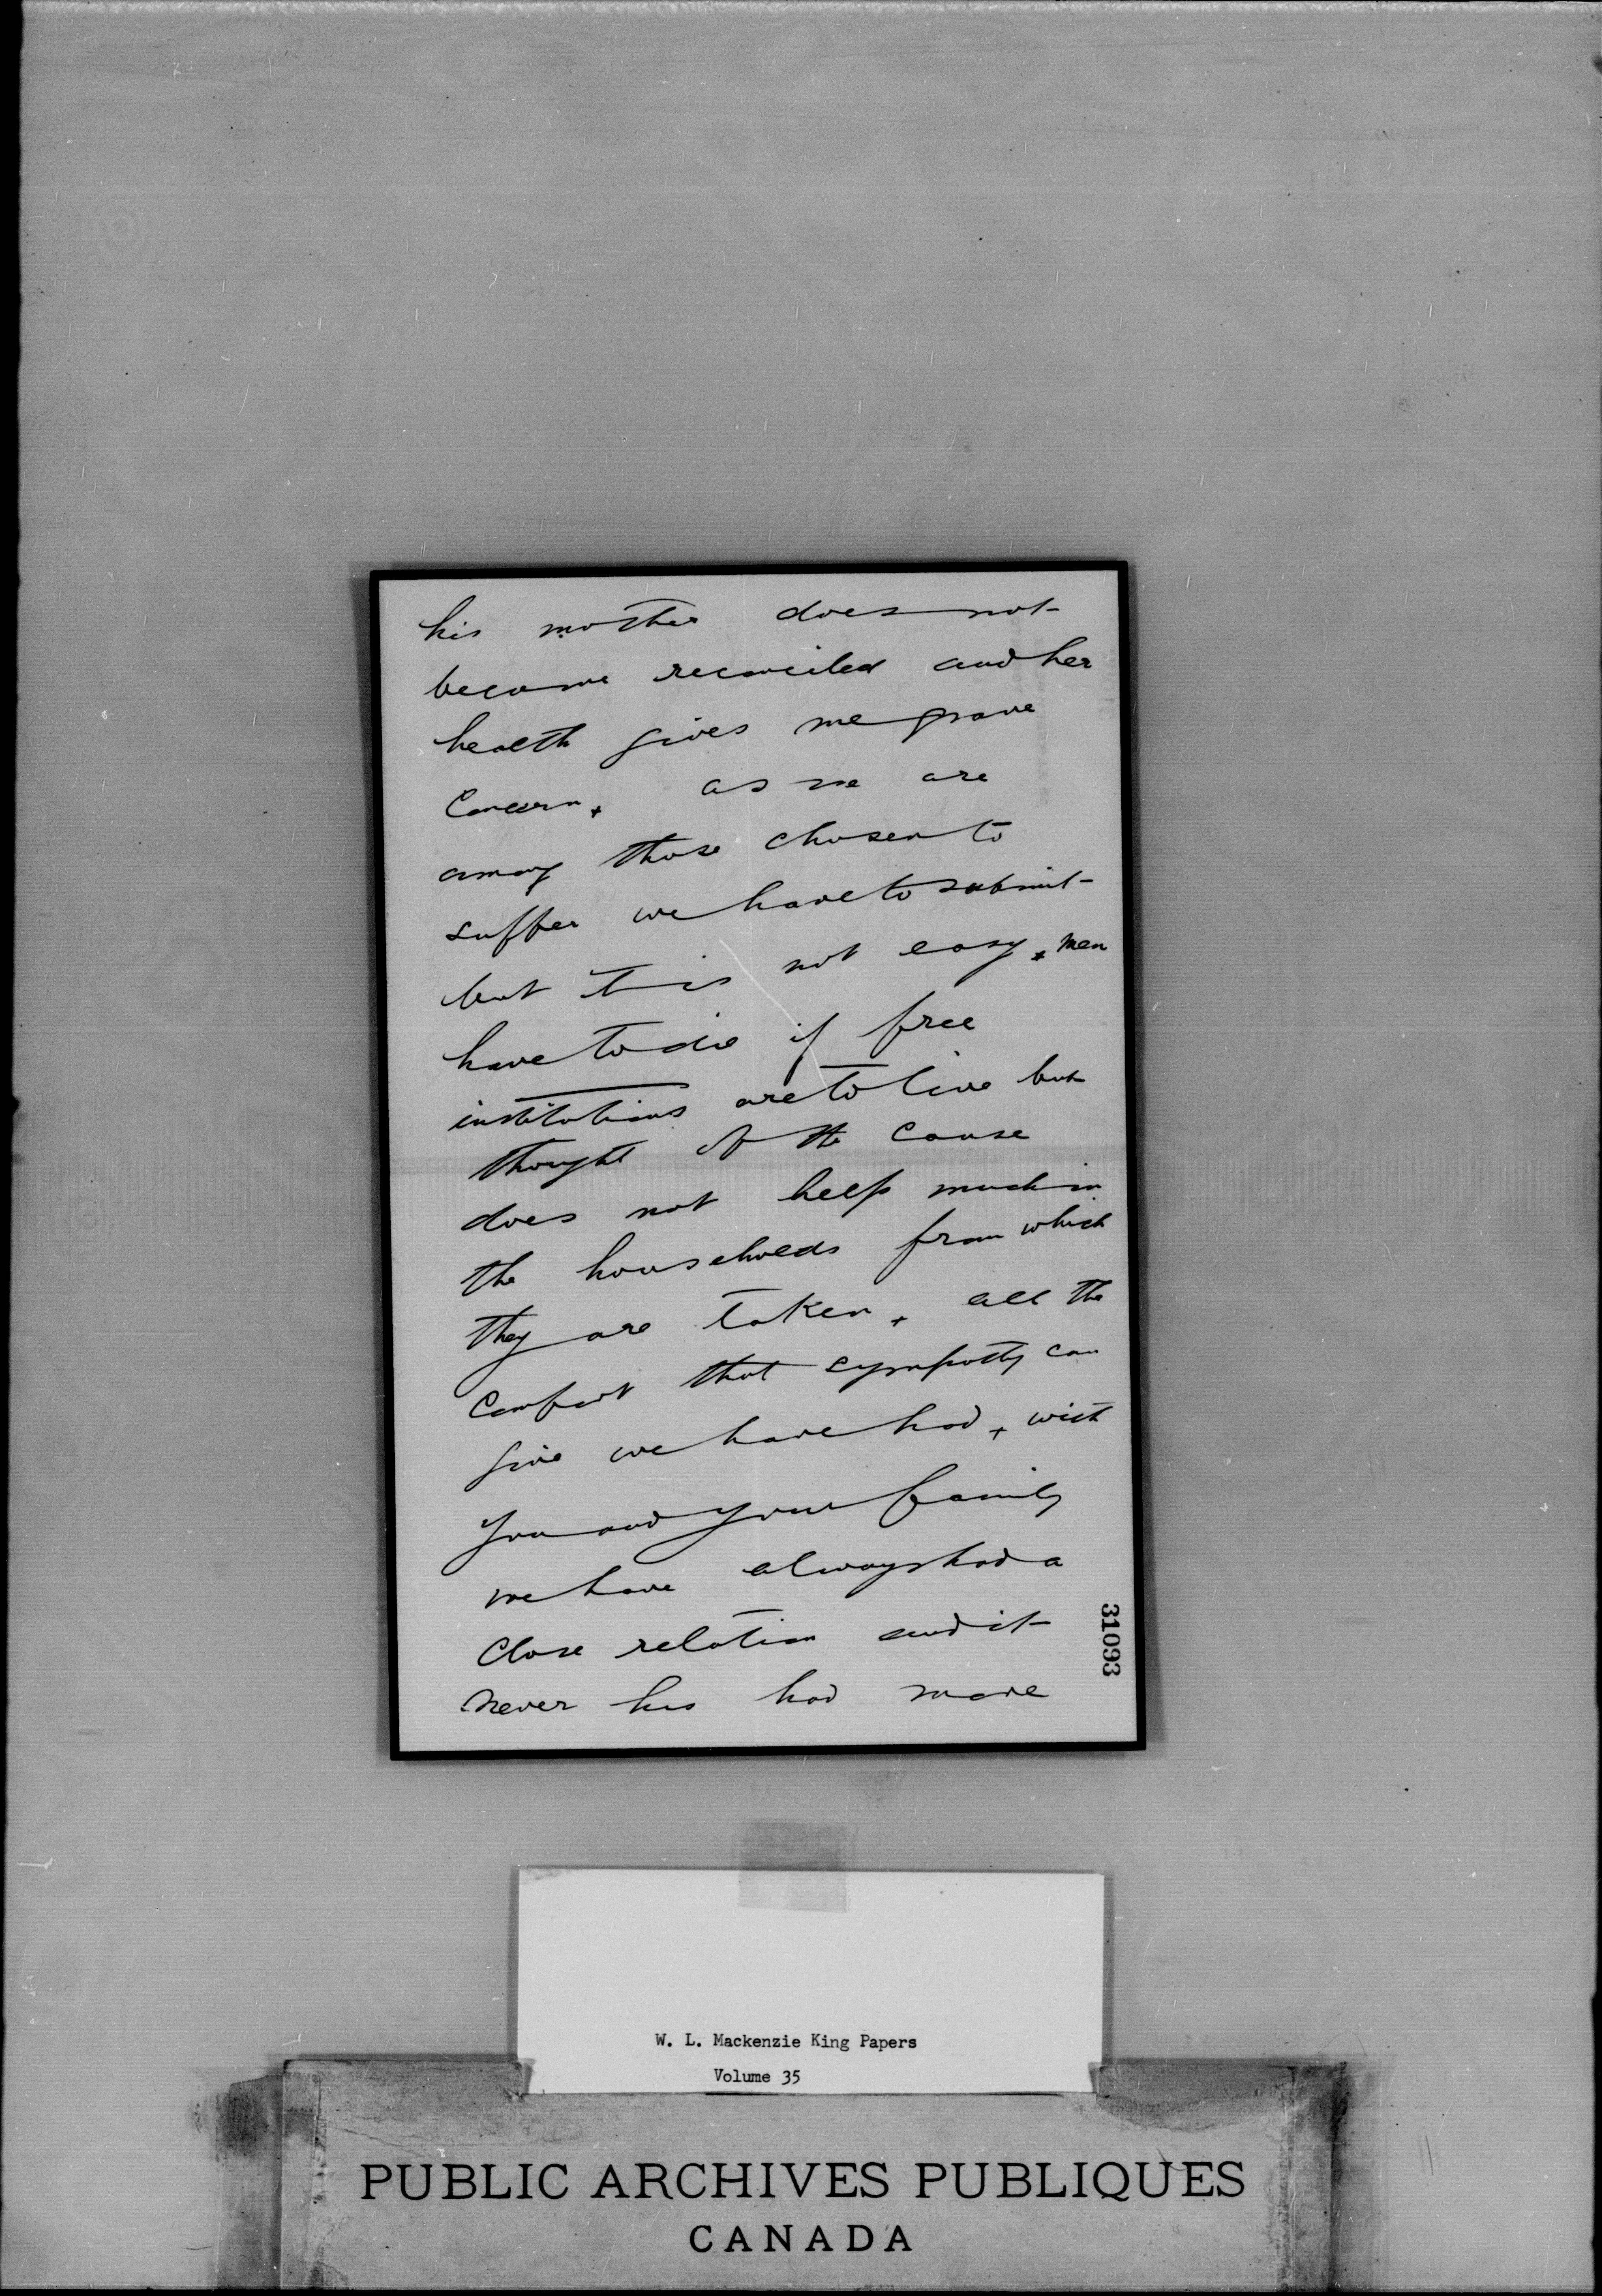 his mother does not
become reconciled and her
health gives me grave
concern. as we are
among those chosen to
suffer we have to submit
but it is not easy. men
have to die if free
institutions are to live but
thought of the cause
does not help much in
the households from which
they are taken. all the
comfort that sympathy can
give we have had. with
you and your family
we have always had a
close relation and it
never has had more
31093
W. L. Mackenzie King Papers
Volume 35
PUBLIC ARCHIVES PUBLIQUES
CANADA